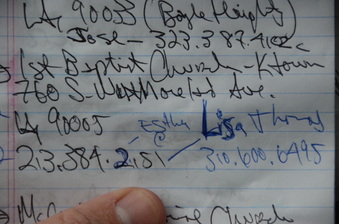 LA, 90033 (Boyle Heights)
Jose - 323.387.
1st Baptist Church - Ktown
760 S. Westmoreland Ave.
LA 90005
Esther @ Lisa
213.384.2151 310.600.6495
Church